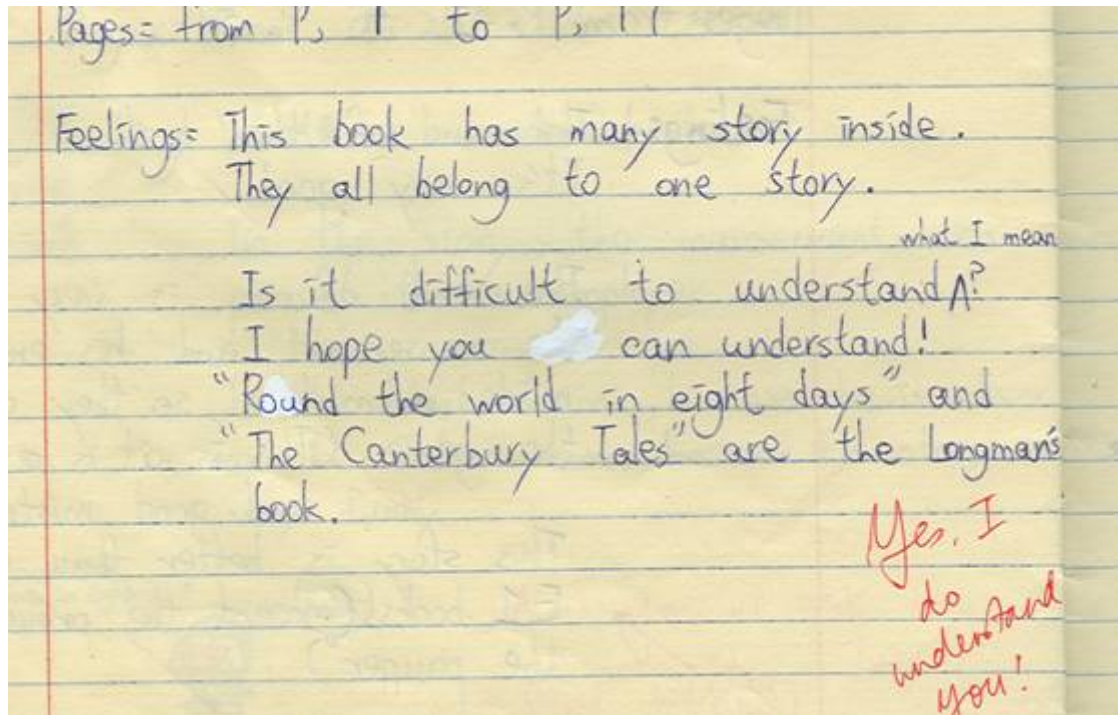 Pages: from P, 1 to P, 
Feelings: This book has many story inside.
They all belong to one story.
what I mean
Is it difficult to understand ∧?
I hope you can understand!
"Round the world in eight days" and
"The Canterbury Tales" are the Longman's
book.
Yes, I
do
understand
you!